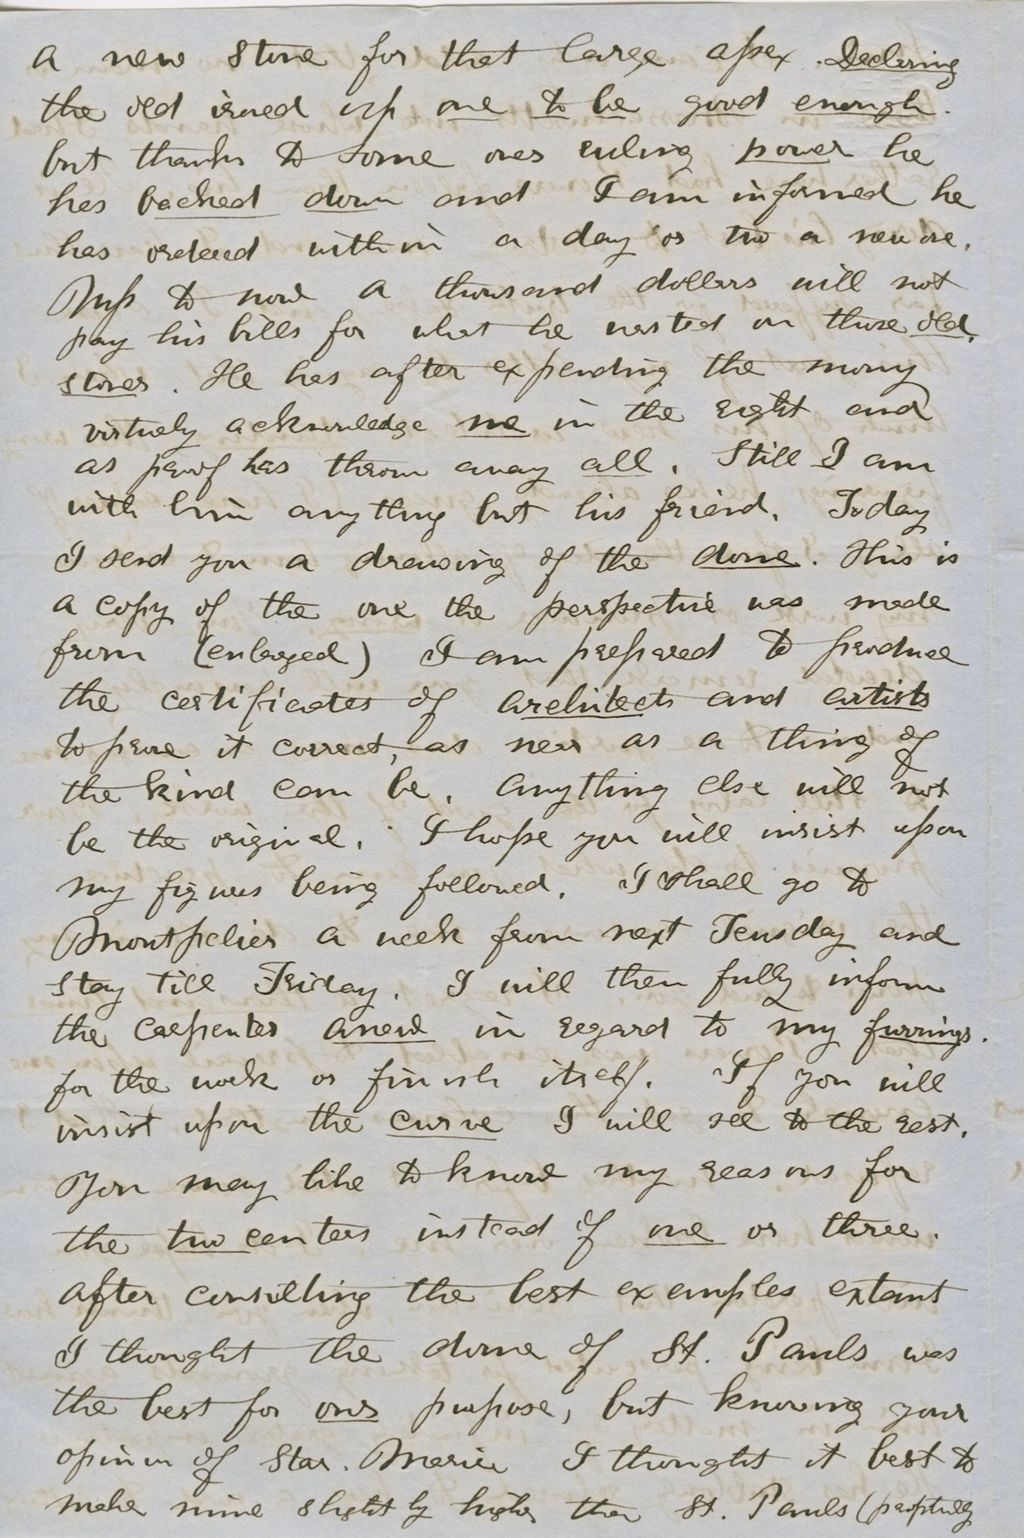 a new stone for that large apex. Declaring
the old ironed up one to be good enough.
but thanks to some ones ruling power he
has backed down and I am informed he
has ordered within a day or two a new one.
Up to now a thousand dollars will not
pay his bills for what he wasted on those old.
stones. He has after expending the mony
virtuely acknowledge me in the right and
as proof has thrown away all. Still I am
with him any thing but his friend. Today
I send you a drawing of the dome. This is
a copy of the one the perspective was made
from (enlarged) I am prepared to produce
the certificates of architects and artists
to prove it correct, as near as a thing of
the kind can be. Anything else will not
be the original. I hope you will insist upon
my figures being followed. I shall go to
Montpelier a week from next Teusday and
stay till Friday. I will then fully inform
the carpenter anew in regard to my furrings.
for the work or finish itself. If you will
insist upon the curve I will see to the rest.
You may like to know my reasons for
the two centers instead of one or three.
After consulting the best examples extant
I thought the dome of St. Pauls was
the best for our purpose, but knowing your
opinin of Sta. Maria I thought it best to
make mine slightly higher than St. Pauls (